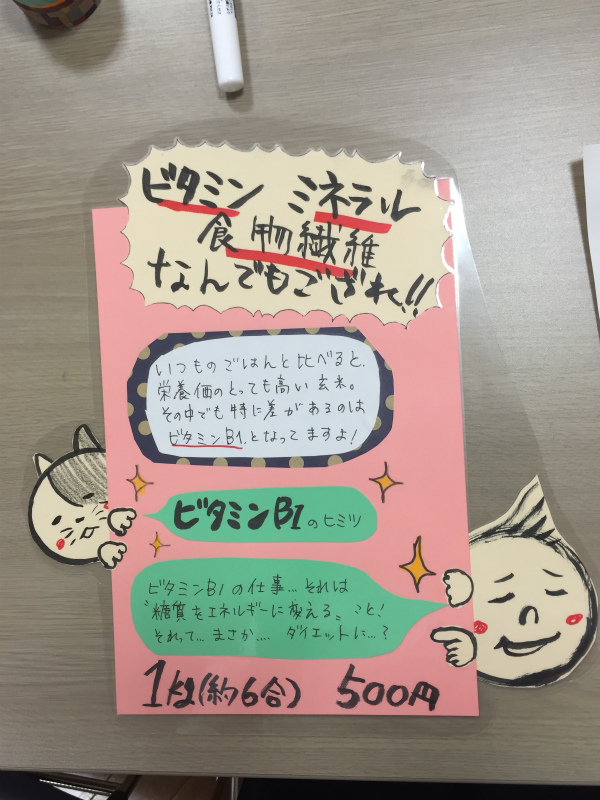 ビタミン ミネラル
食物繊維
なんでもござれ!!
いつものごはんと比べると、
栄養価のとっても高い玄米。
その中でも特に差があるのは
ビタミンB1、となってますよ!
ビタミンB1のヒミツ
ビタミンB1の仕事...それは
"糖質をエネルギーに変える"こと!
それって...まさか.... ダイエットに...?
1kg(約6合) 500円